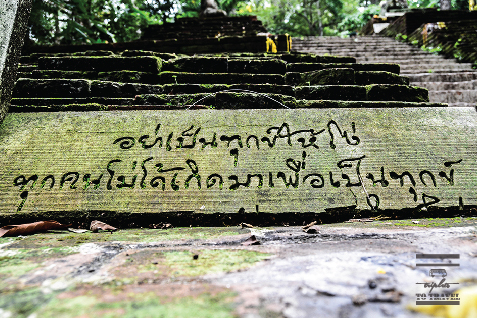 อย่าเป็นทุกข์ให้โง่
ทุกคนไม่ได้เกิดมาเพื่อเป็นทุกข์
triplez
TO TRAVEL